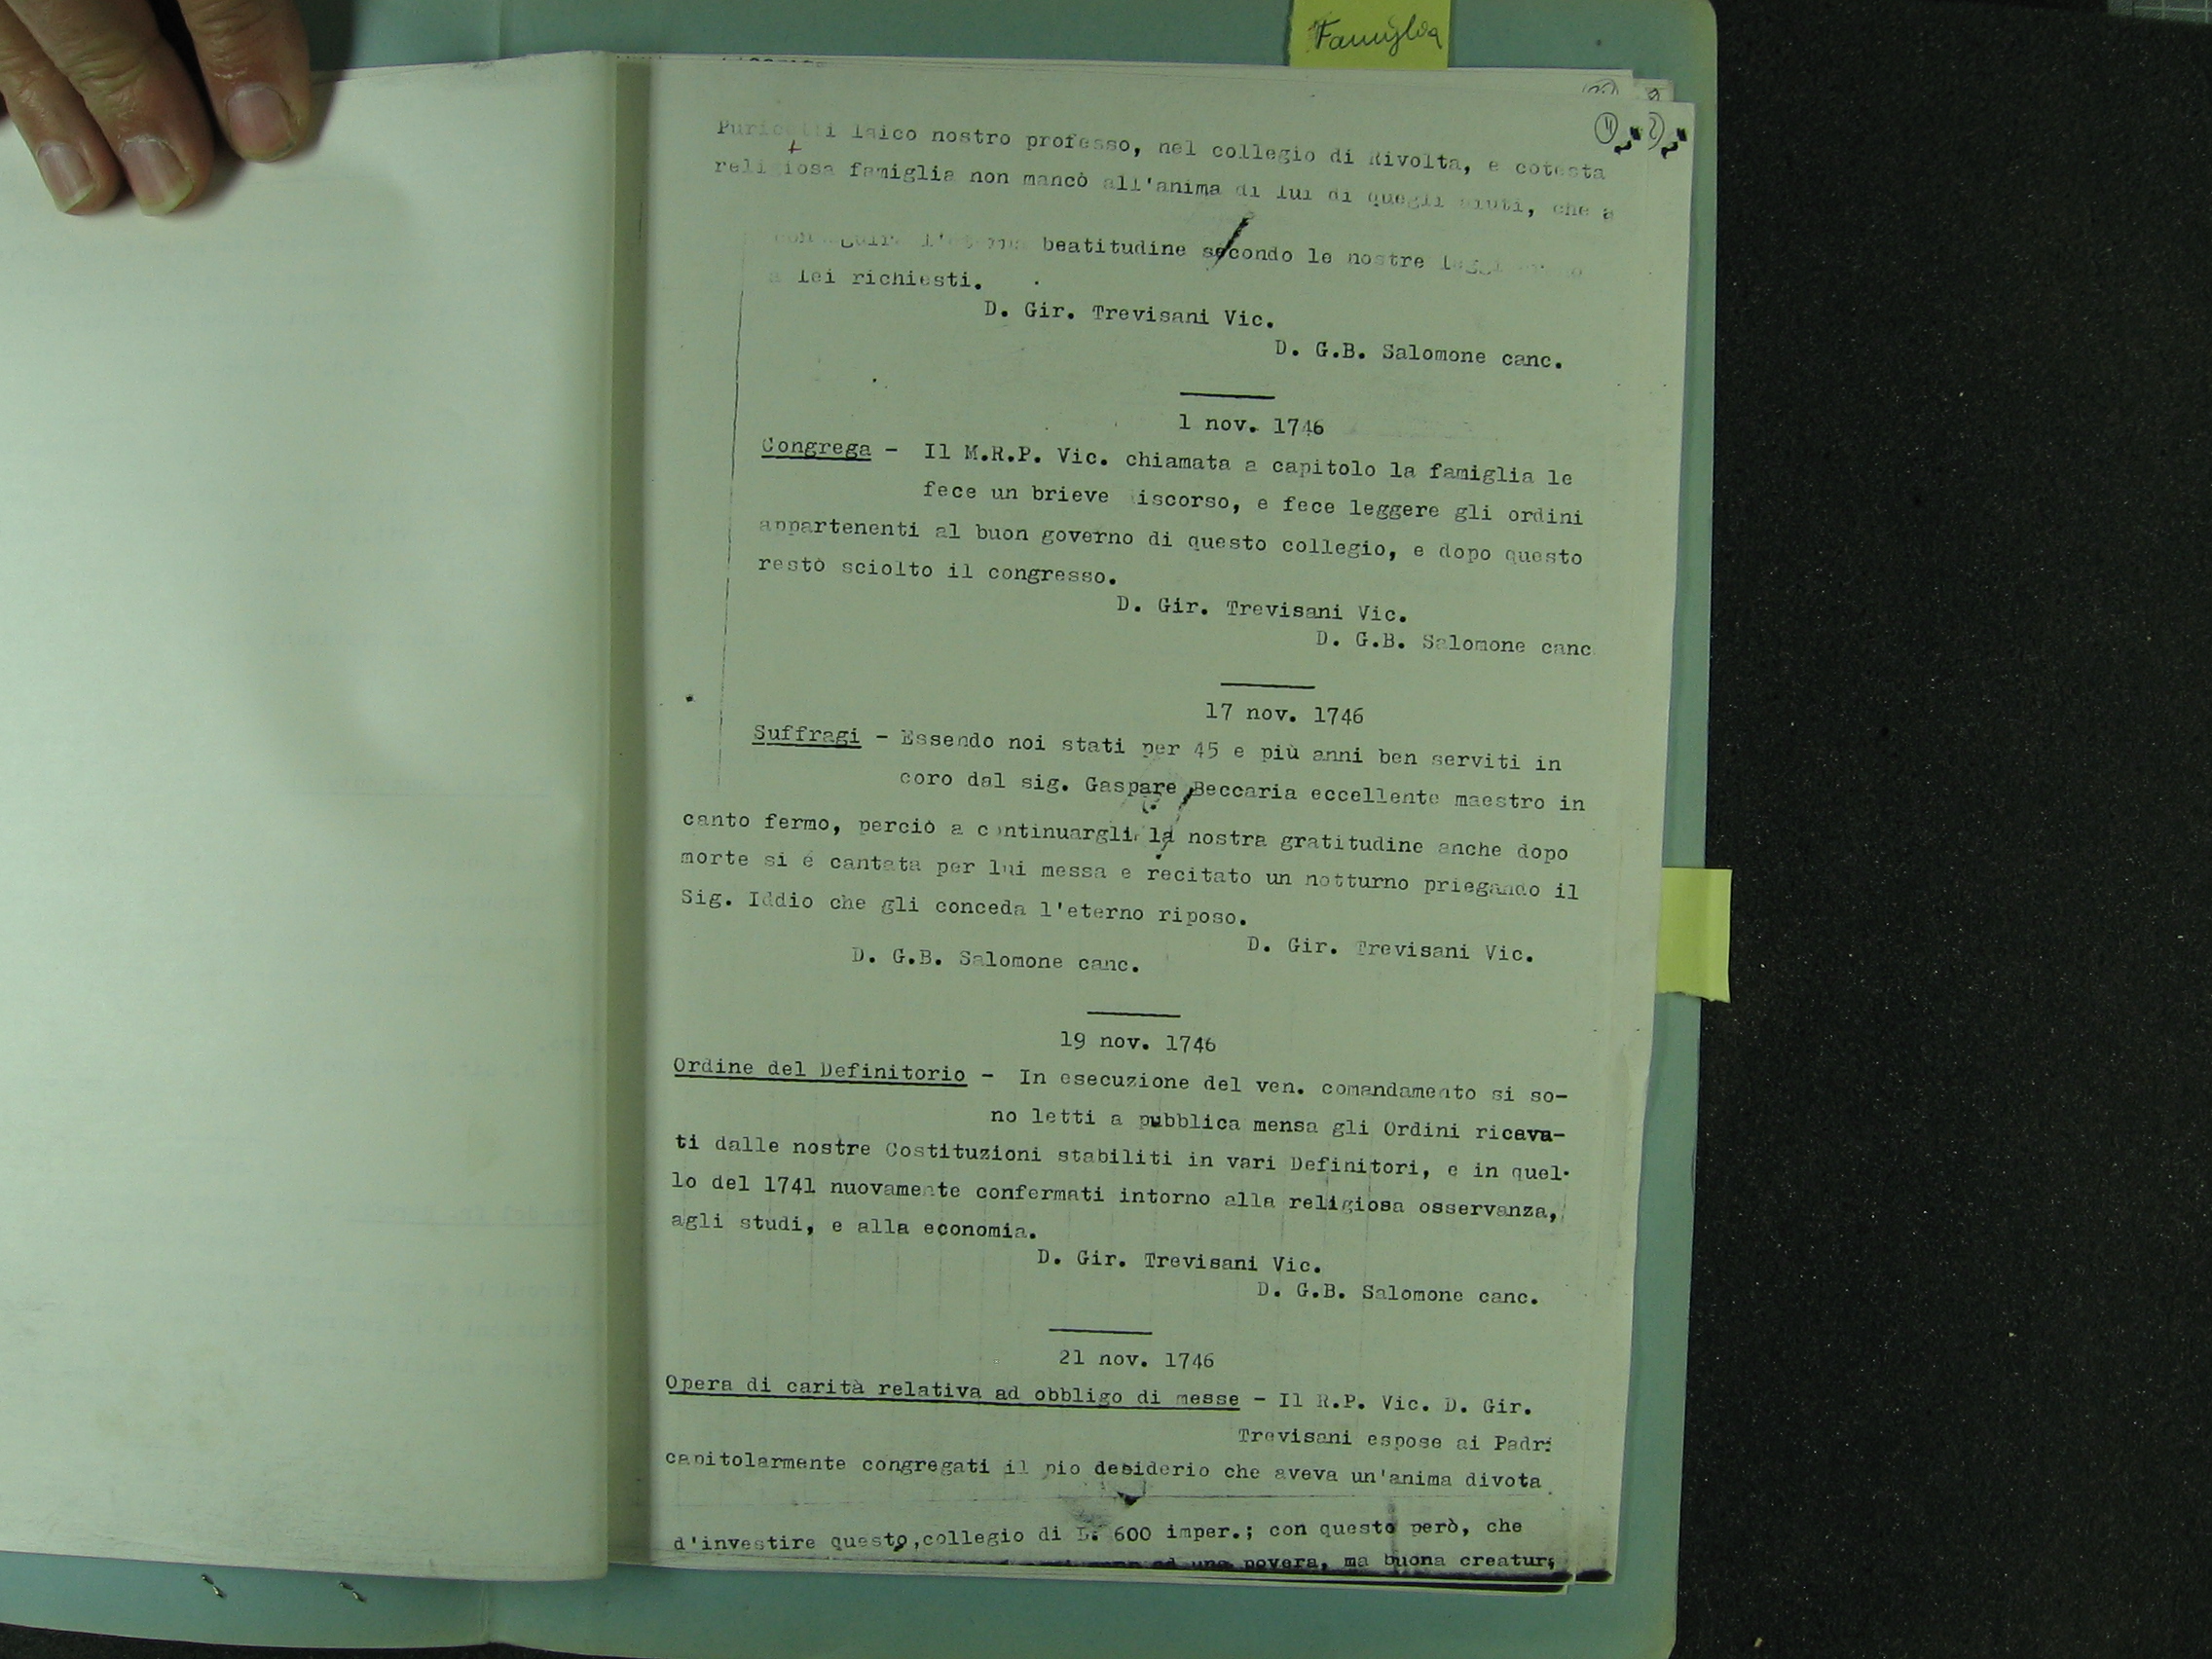 Famiglia
Puricelli laico nostro professo, nel collegio di Rivolta, e cotesta
religiosa famiglia non mancò all'anima di lui di quegli aiuti, che a
l'eterna beatitudine secondo le nostre leggi
a lei richiesti.
D. Gir. Trevisani Vic.
D. G.B. Salomone canc.
1 nov. 1746
Congrega - Il M.R.P. Vic. chiamata a capitolo la famiglia le
fece un brieve iscorso, e fece leggere gli ordini
appartenenti al buon governo di questo collegio, e dopo questo
restò sciolto il congresso.
D. Gir. Trevisani Vic.
D. G.B. Salomone canc
17 nov. 1746
Suffragi - Essendo noi stati per 45 e più anni ben serviti in
coro dal sig. Gaspare Beccaria eccellente maestro in
canto fermo, perciò a continuargli la nostra gratitudine anche dopo
morte si é cantata per lui messa e recitato un notturno priegando il
Sig. Iddio che gli conceda l'eterno riposo.
D. Gir. Trevisani Vic.
D. G.B. Salomone canc.
19 nov. 1746
Ordine del Definitorio - In esecuzione del ven. comandamento si so-
no letti a pubblica mensa gli Ordini ricava-
ti dalle nostre Costituzioni stabiliti in vari Definitori, e in quel-
lo del 1741 nuovamente confermati intorno alla religiosa osservanza,
agli studi, e alla economia.
D. Gir. Trevisani Vic.
D. G.B. Salomone canc.
21 nov. 1746
Opera di carità relativa ad obbligo di messe - Il R.P. Vic. D. Gir.
Trevisani espose ai Padri
capitolarmente congregati il pio desiderio che aveva un'anima divota
d'investire questo,collegio di L. 600 imper.; con questo però, che
ad una povera, ma buona creatura